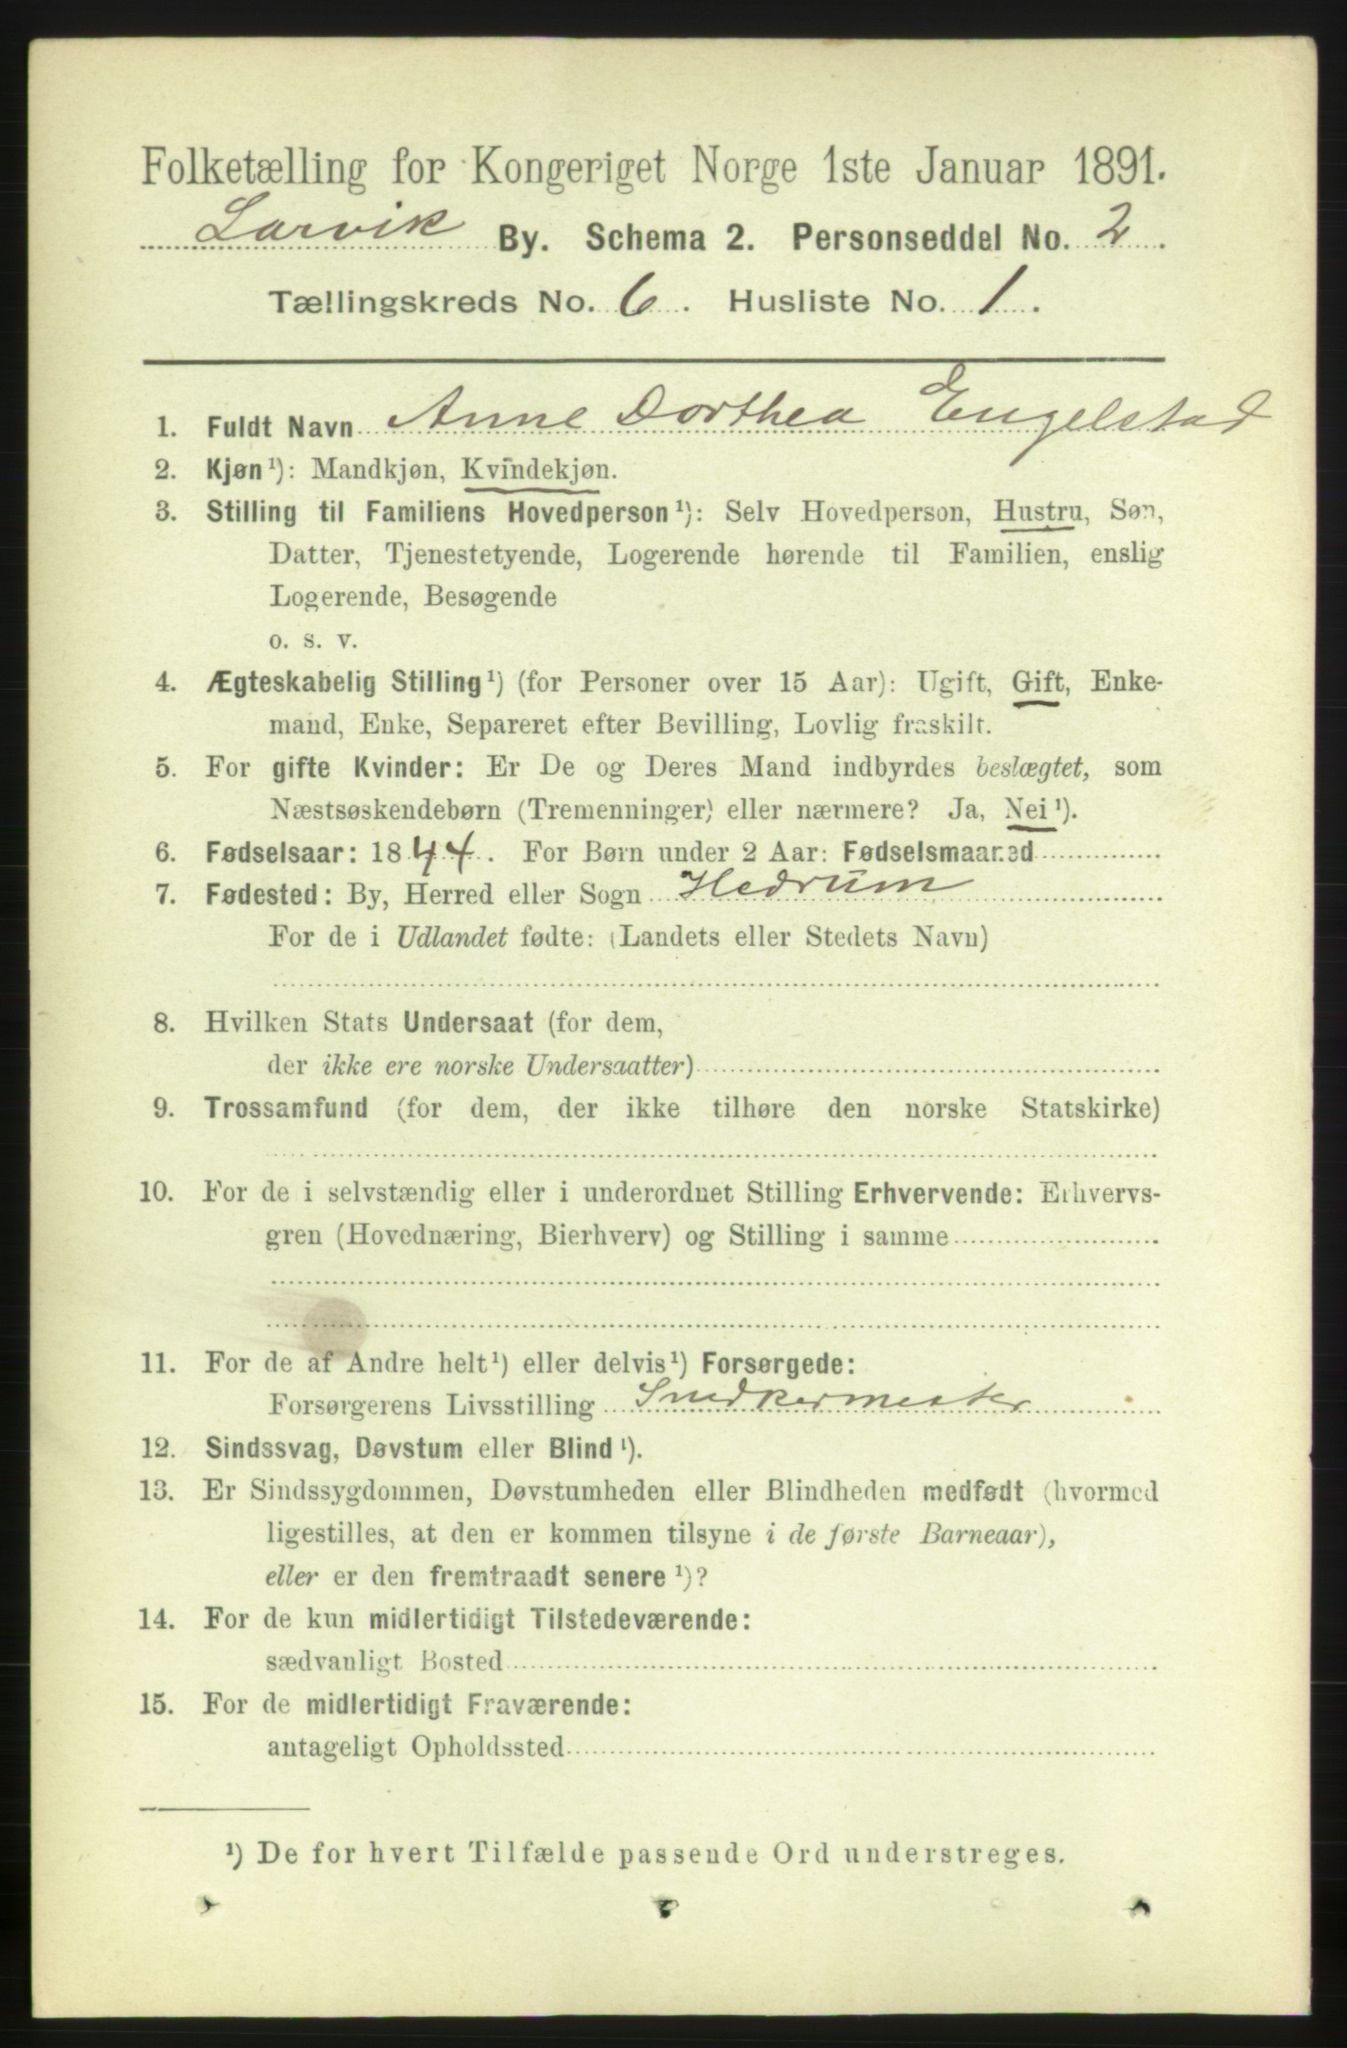 Folketælling for Kongeriget Norge 1ste Januar 1891.
Larvik By. Schema 2. Personseddel No. 2.
Tællingskreds No. 6. Husliste No. 1.
1. Fuldt Navn Anne Dorthea Engelstad
2. Kjøn¹): Mandkjøn, Kvindekjøn.
3. Stilling til Familiens Hovedperson¹): Selv Hovedperson, Hustru, Søn,
Datter, Tjenestetyende, Logerende hørende til Familien, enslig
Logerende, Besøgende
o. s. v.
4. Ægteskabelig Stilling¹) (for Personer over 15 Aar): Ugift, Gift, Enke-
mand, Enke, Separeret efter Bevilling, Lovlig fraskilt.
5. For gifte Kvinder: Er De og Deres Mand indbyrdes beslægtet, som
Næstsøskendebørn (Tremenninger) eller nærmere? Ja, Nei¹).
6. Fødselsaar: 1844. For Børn under 2 Aar: Fødselsmaaned
7. Fødested: By, Herred eller Sogn Hedrum
For de i Udlandet fødte: (Landets eller Stedets Navn)
8. Hvilken Stats Undersaat (for dem,
der ikke ere norske Undersaatter)
9. Trossamfund (for dem, der ikke tilhøre den norske Statskirke)
10. For de i selvstændig eller i underordnet Stilling Erhvervende: Erhvervs-
gren (Hovednæring, Bierhverv) og Stilling i samme
11. For de af Andre helt¹) eller delvis¹) Forsørgede:
Forsørgerens Livsstilling Snedkermester
12. Sindssvag, Døvstum eller Blind¹).
13. Er Sindssygdommen, Døvstumheden eller Blindheden medfødt (hvormed
ligestilles, at den er kommen tilsyne i de første Barneaar),
eller er den fremtraadt senere¹)?
14. For de kun midlertidigt Tilstedeværende:
sædvanligt Bosted
15. For de midlertidigt Fraværende:
antageligt Opholdssted
¹) De for hvert Tilfælde passende Ord understreges.